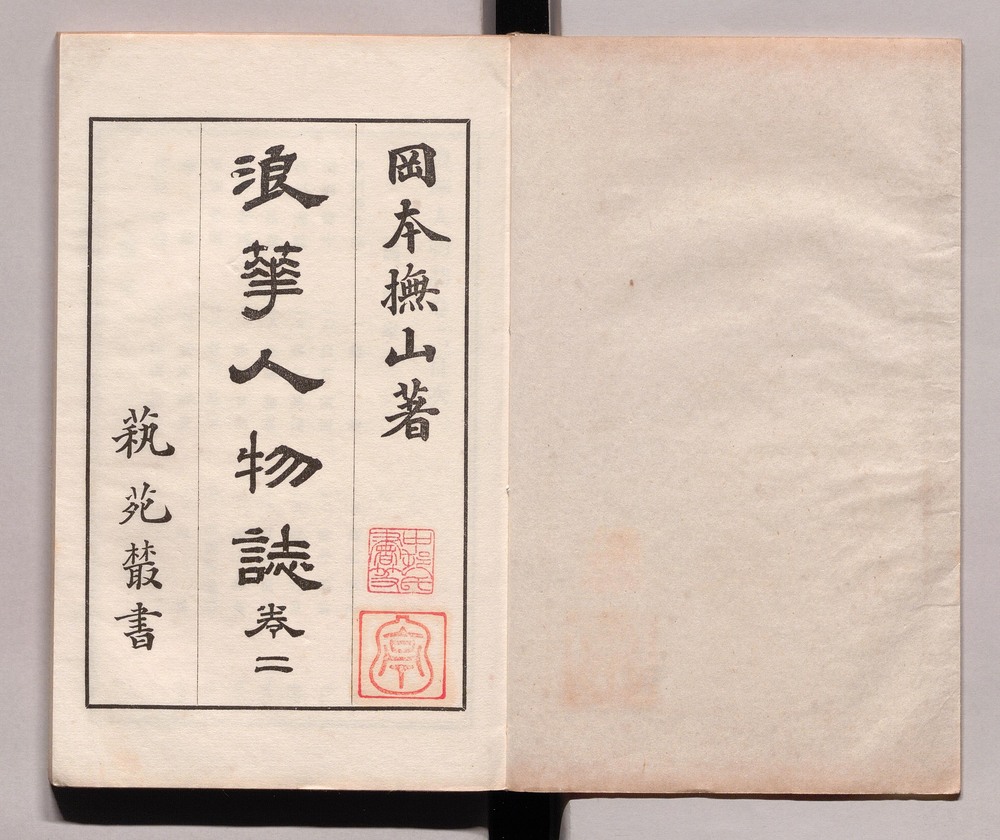 岡本撫山著
浪華人物誌卷二
蓺苑叢書